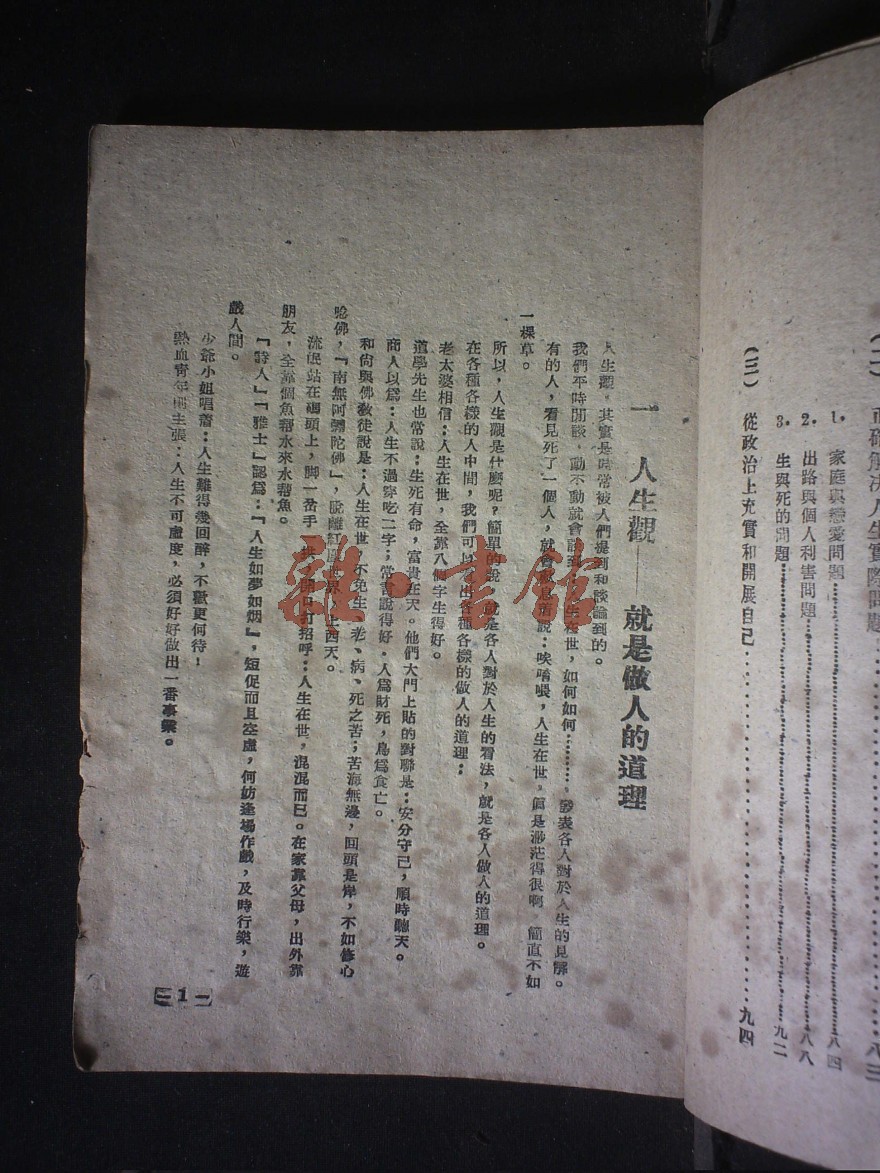 (二) 正確解決人生實際問題……八三
1. 家庭與戀愛問題……八四
2. 出路與個人利害問題……八八
3. 生與死的問題……九二
(三) 從政治上充實和開展自己……九四
一 人生觀——就是做人的道理
人生觀,其實是時常被人們提到和談論到的。
我們平時閒談,動不動就會談到人生在世,如何如何………。發表各人對於人生的見解。
有的人,看見死了一個人,就會說:唉唷喂,人生在世,眞是渺茫得很啊,簡直不如
一棵草。
所以,人生觀是什麼呢?簡單的說,就是各人對於人生的看法,就是各人做人的道理。
在各種各樣的人中間,我們可以看出各種各樣的做人的道理:
老太婆相信:人生在世,全靠八個字生得好。
道學先生也常說:生死有命,富貴在天。他們大門上貼的對聯是:安分守己,順時聽天。
商人以爲:人生不過穿吃二字;常言說得好,人爲財死,鳥爲食亡。
和尙與佛敎徒說是:人生在世,不免生、老、病、死之苦;苦海無邊,回頭是岸,不如修心
唸佛,『南無阿彌陀佛』,脫離紅塵世界,上西天。
流氓站在碼頭上,脚一岔手一拱,開口打招呼:人生在世,混混而已。在家靠父母,出外靠
朋友,全靠個魚藉水來水藉魚。
『詩人』『雅士』認爲:『人生如夢如烟』,短促而且空虛,何妨逢場作戲,及時行樂,遊
戲人間。
少爺小姐唱着:人生難得幾回醉,不歡更何待!
熱血靑年則主張:人生不可虛度,必須好好做出一番事業。
1
雜·書館